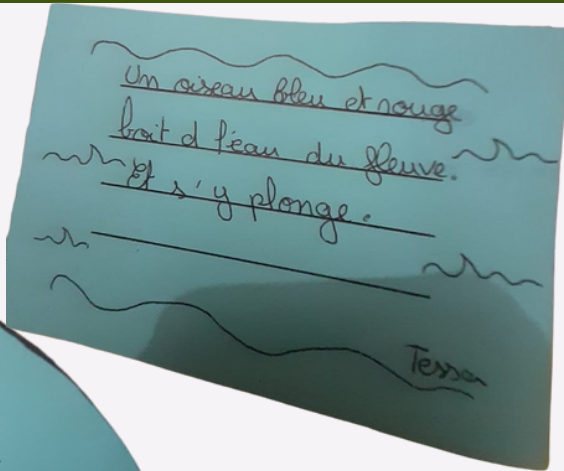 Un oiseau bleu et rouge
boit d l'eau du fleuve.
Et s'y plonge.